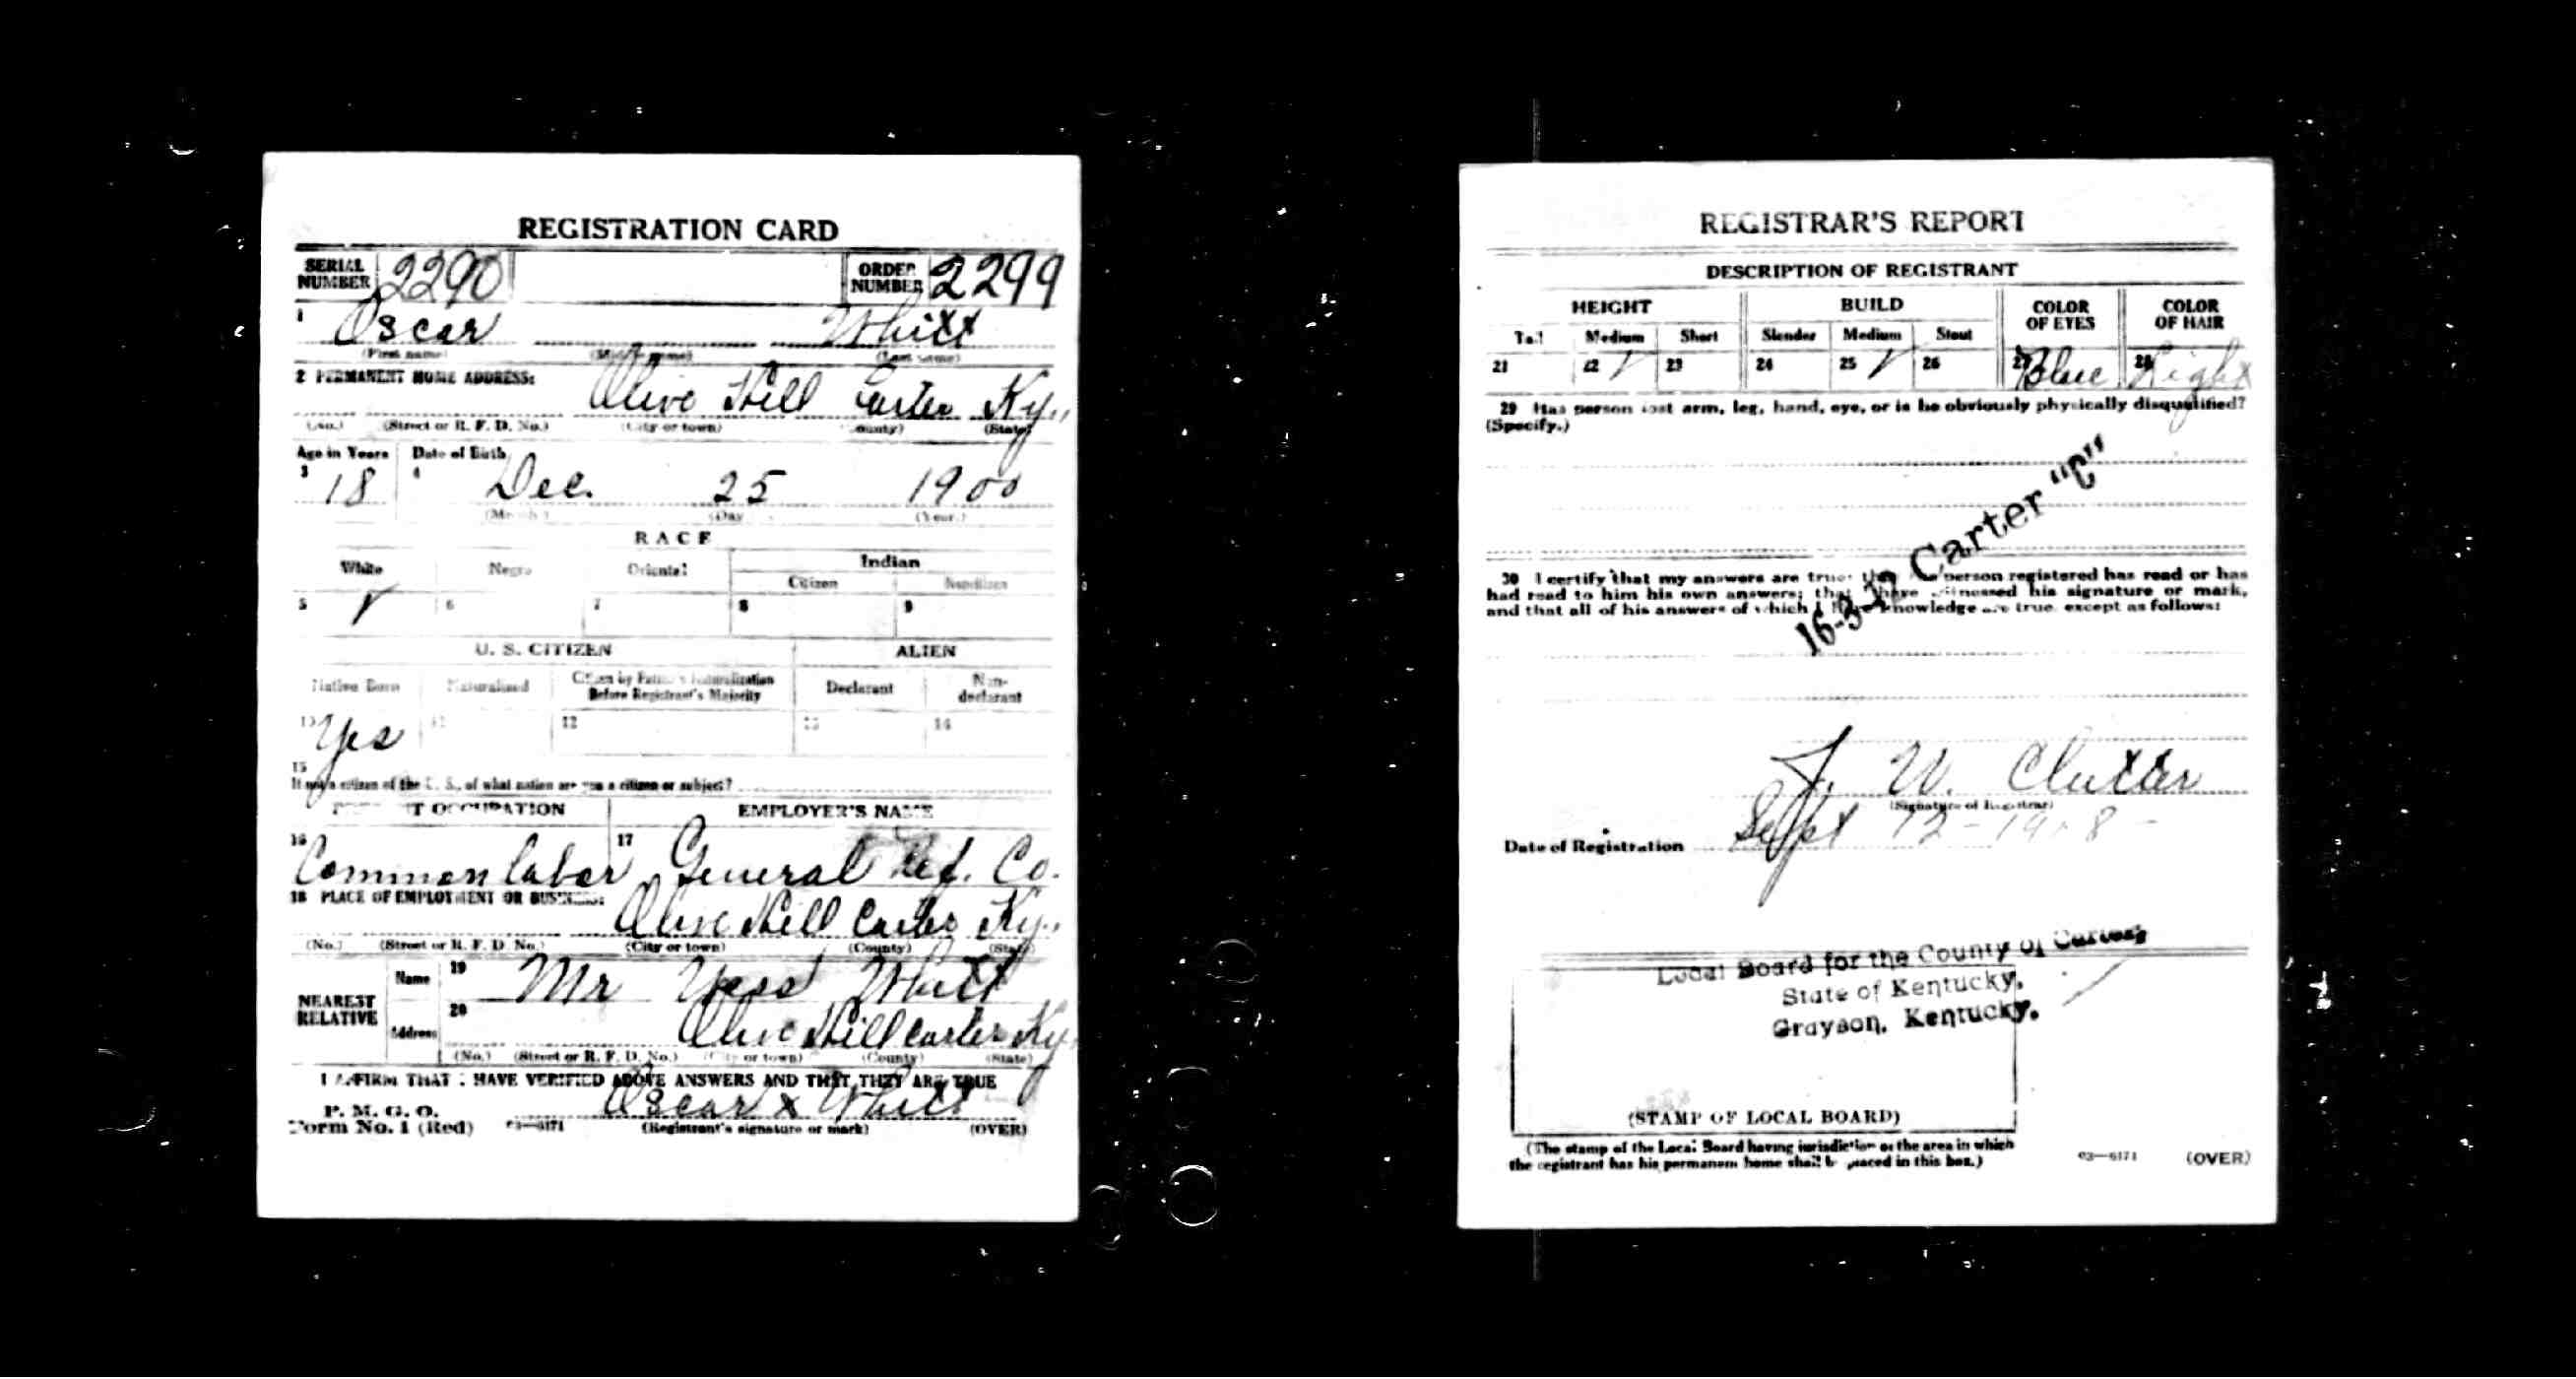 REGISTRATION CARD
SERIAL NUMBER 2290 ORDER NUMBER 2299
1 Oscar Whitt
(First name) (Middle name) (Last name)
2 PERMANENT HOME ADDRESS: Olive Hill Carter Ky.,
(No.) (Street or R. F. D. No.) (City or town) (County) (State)
Age in Years Date of Birth
3 18 4 Dec. 25 1900
(Month) (Day) (Year.)
RACE
White Negro Oriental Indian
Citizen Noncitizen
5 ✓ 6 7 8 9
U. S. CITIZEN ALIEN
Native Born Naturalized Citizen by Father's Naturalization Before Registrant's Majority Declarant Non-declarant
10 Yes 11 12 13 14
15
If not a citizen of the U. S., of what nation are you a citizen or subject?
PRESENT OCCUPATION EMPLOYER'S NAME
16 Common labor 17 General Ref. Co.
18 PLACE OF EMPLOYMENT OR BUSINESS:
Olive Hill Carter Ky.,
(No.) (Street or R. F. D. No.) (City or town) (County) (State)
NEAREST RELATIVE Name 19 Mr Whitt
Address 20 Olive Hill Carter Ky
(No.) (Street or R. F. D. No.) (City or town) (County) (State)
I AFFIRM THAT I HAVE VERIFIED ABOVE ANSWERS AND THAT THEY ARE TRUE
P. M. G. O.
Form No. 1 (Red) 03—6171 Oscar x Whitt
(Registrant's signature or mark) (OVER)
REGISTRAR'S REPORT
DESCRIPTION OF REGISTRANT
HEIGHT BUILD COLOR OF EYES COLOR OF HAIR
Tall Medium Short Slender Medium Stout
21 22 ✓ 23 24 25 ✓ 26 27 Blue 28 Light
29 Has person lost arm, leg, hand, eye, or is he obviously physically disqualified?
(Specify.)
16-3-12 Carter "C"
30 I certify that my answers are true; that the person registered has read or has
had read to him his own answers; that I have witnessed his signature or mark,
and that all of his answers of which I have knowledge are true, except as follows:
W. Clutter
(Signature of Registrar)
Date of Registration Sept 12-1918-
Local Board for the County of Carter,
State of Kentucky,
Grayson, Kentucky.
(STAMP OF LOCAL BOARD)
(The stamp of the Local Board having jurisdiction of the area in which
the registrant has his permanent home shall be placed in this box.)
03—6171 (OVER)